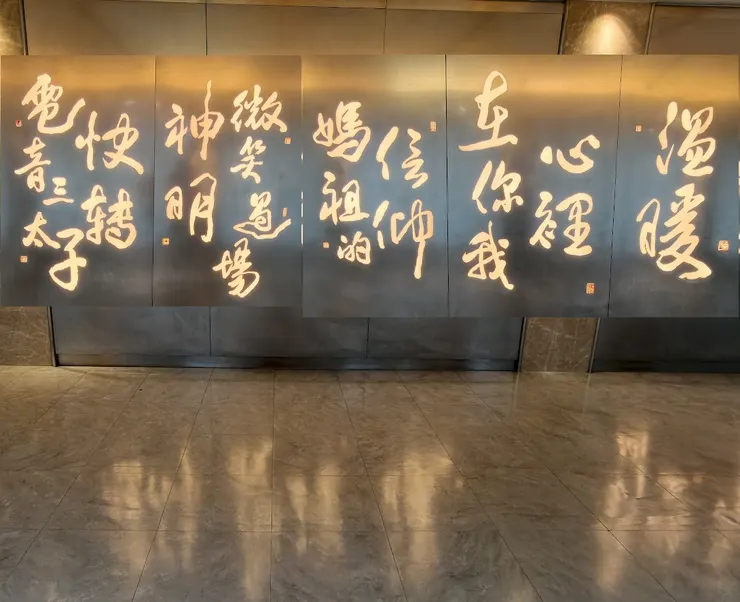 電音三太子
快轉
神明
微笑過場
媽祖的
信仰
在你我
心裡
溫暖